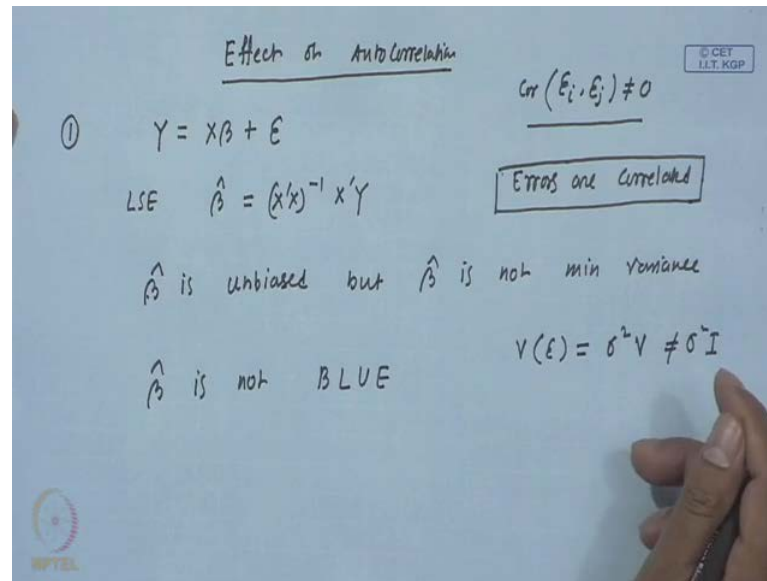 Effect on Autocorrelation
© CET
I.I.T. KGP
Corr (εi, εj) ≠ 0
① Y = Xβ + ε
Errors are correlated
LSE β̂ = (X'X)⁻¹ X'Y
β̂ is unbiased but β̂ is not min variance
V(ε) = σ²V ≠ σ²I
β̂ is not BLUE
NPTEL